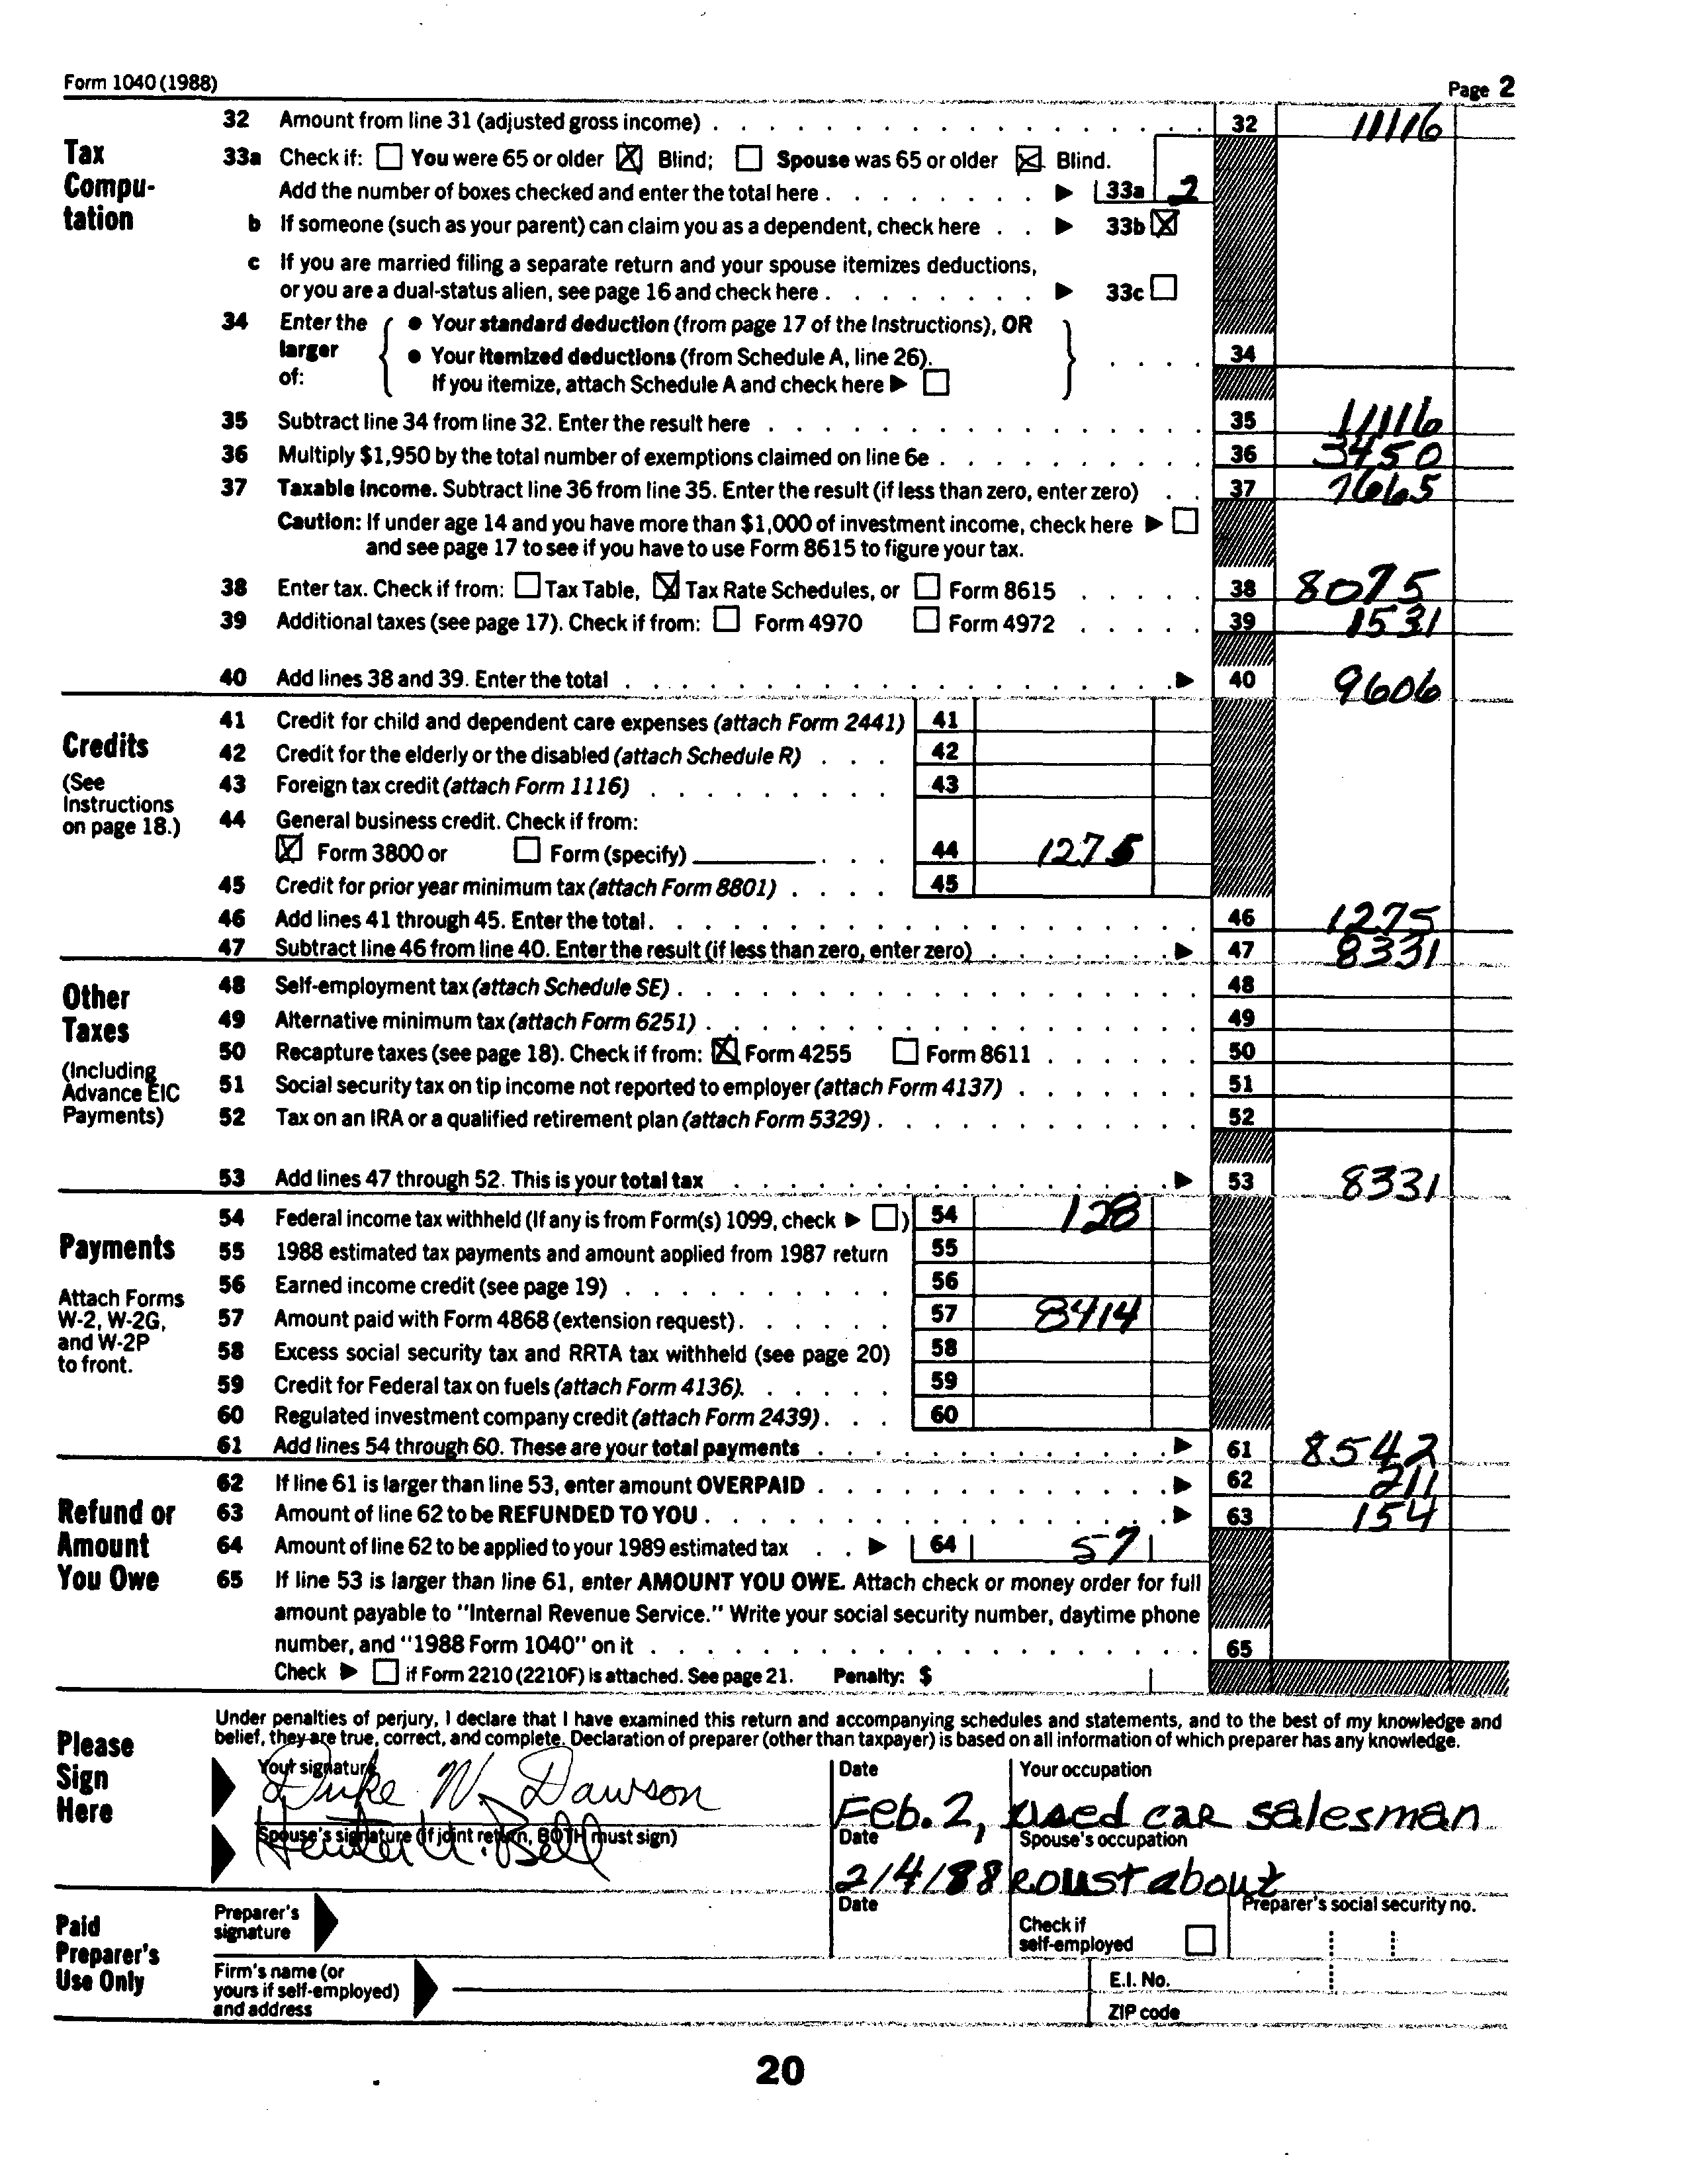 Form 1040 (1988) Page 2
Tax Compu-tation
32 Amount from line 31 (adjusted gross income) 32 11116
33a Check if: You were 65 or older X Blind; Spouse was 65 or older X Blind.
Add the number of boxes checked and enter the total here 33a 2
b If someone (such as your parent) can claim you as a dependent, check here 33b X
c If you are married filing a separate return and your spouse itemizes deductions,
or you are a dual-status alien, see page 16 and check here 33c
34 Enter the larger of: • Your standard deduction (from page 17 of the Instructions), OR
• Your itemized deductions (from Schedule A, line 26). 34
If you itemize, attach Schedule A and check here
35 Subtract line 34 from line 32. Enter the result here 35 11116
36 Multiply $1,950 by the total number of exemptions claimed on line 6e 36 3450
37 Taxable income. Subtract line 36 from line 35. Enter the result (if less than zero, enter zero) 37 7665
Caution: If under age 14 and you have more than $1,000 of investment income, check here
and see page 17 to see if you have to use Form 8615 to figure your tax.
38 Enter tax. Check if from: Tax Table, X Tax Rate Schedules, or Form 8615 38 8075
39 Additional taxes (see page 17). Check if from: Form 4970 Form 4972 39 1531
40 Add lines 38 and 39. Enter the total 40 9606
Credits
(See Instructions on page 18.)
41 Credit for child and dependent care expenses (attach Form 2441) 41
42 Credit for the elderly or the disabled (attach Schedule R) 42
43 Foreign tax credit (attach Form 1116) 43
44 General business credit. Check if from:
X Form 3800 or Form (specify) 44 1275
45 Credit for prior year minimum tax (attach Form 8801) 45
46 Add lines 41 through 45. Enter the total. 46 1275
47 Subtract line 46 from line 40. Enter the result (if less than zero, enter zero) 47 8331
Other Taxes
(Including Advance EIC Payments)
48 Self-employment tax (attach Schedule SE) 48
49 Alternative minimum tax (attach Form 6251) 49
50 Recapture taxes (see page 18). Check if from: X Form 4255 Form 8611 50
51 Social security tax on tip income not reported to employer (attach Form 4137) 51
52 Tax on an IRA or a qualified retirement plan (attach Form 5329) 52
53 Add lines 47 through 52. This is your total tax 53 8331
Payments
Attach Forms W-2, W-2G, and W-2P to front.
54 Federal income tax withheld (If any is from Form(s) 1099, check ) 54 128
55 1988 estimated tax payments and amount applied from 1987 return 55
56 Earned income credit (see page 19) 56
57 Amount paid with Form 4868 (extension request) 57 8414
58 Excess social security tax and RRTA tax withheld (see page 20) 58
59 Credit for Federal tax on fuels (attach Form 4136). 59
60 Regulated investment company credit (attach Form 2439) 60
61 Add lines 54 through 60. These are your total payments 61 8542
Refund or Amount You Owe
62 If line 61 is larger than line 53, enter amount OVERPAID 62 211
63 Amount of line 62 to be REFUNDED TO YOU 63 154
64 Amount of line 62 to be applied to your 1989 estimated tax 64 57
65 If line 53 is larger than line 61, enter AMOUNT YOU OWE. Attach check or money order for full
amount payable to "Internal Revenue Service." Write your social security number, daytime phone
number, and "1988 Form 1040" on it 65
Check if Form 2210 (2210F) is attached. See page 21. Penalty: $
Please Sign Here
Under penalties of perjury, I declare that I have examined this return and accompanying schedules and statements, and to the best of my knowledge and
belief, they are true, correct, and complete. Declaration of preparer (other than taxpayer) is based on all information of which preparer has any knowledge.
Your signature Date Your occupation
Duke W. Dawson Feb. 2, used car salesman
Spouse's signature (if joint return, BOTH must sign) Date Spouse's occupation
Bell 2/4/88 roustabout
Paid Preparer's Use Only
Preparer's signature Date Check if self-employed Preparer's social security no.
Firm's name (or yours if self-employed) and address E.I. No.
ZIP code
20